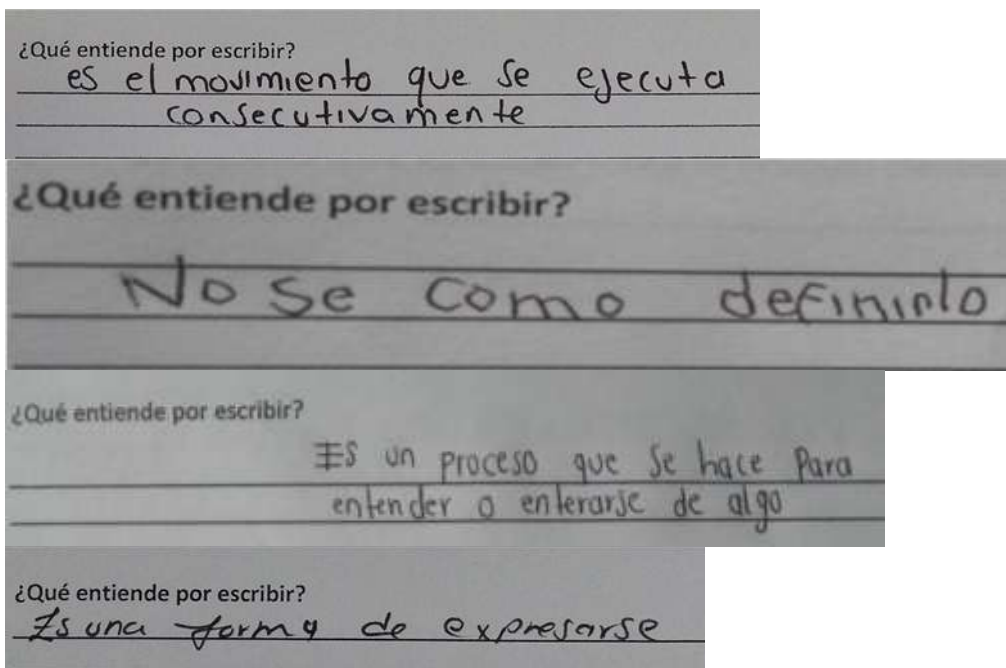 ¿Qué entiende por escribir?
es el movimiento que se ejecuta
consecutivamente
¿Qué entiende por escribir?
No se como definirlo
¿Qué entiende por escribir?
Es un proceso que se hace Para
entender o enterarse de algo
¿Qué entiende por escribir?
Es una forma de expresarse